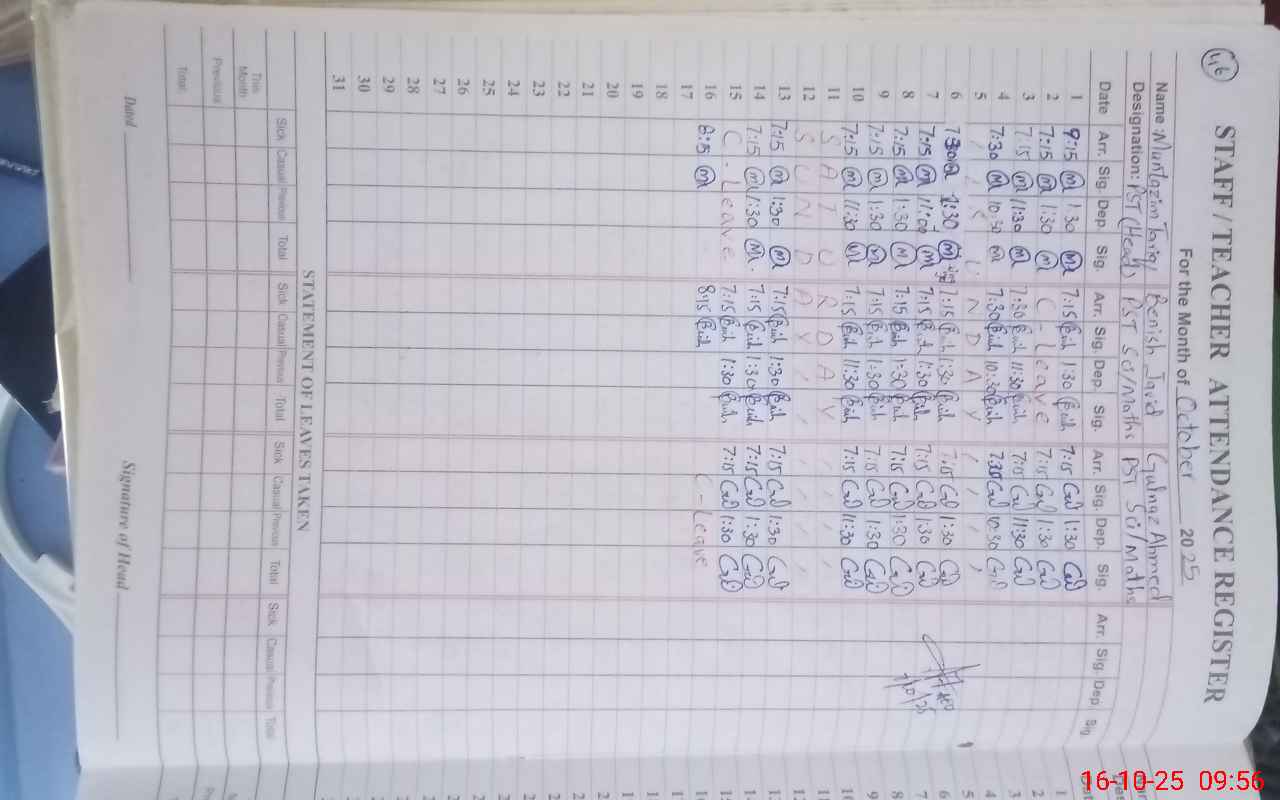 46
STAFF / TEACHER ATTENDANCE REGISTER
For the Month of October 2025
Name: Muntazim Tariq Benish Javid Gulnaz Ahmed
Designation: PST (Head) PST Sci/Maths PST Sci/Maths
Date Arr. Sig. Dep. Sig. Arr. Sig. Dep. Sig. Arr. Sig. Dep. Sig. Arr. Sig. Dep. Sig.
1 9:15 M 1:30 M 7:15 1:30 7:15 Gul 1:30 Gul
2 7:15 M 1:30 M C - Leave 7:15 Gul 1:30 Gul
3 7:15 M 11:30 M 7:30 11:30 7:15 Gul 11:30 Gul
4 7:30 M 10:30 M 7:30 10:30 7:30 Gul 10:30 Gul
5 S U N D A Y
6 7:30 1:30 M 7:15 1:30 7:15 Gul 1:30 Gul
7 7:15 M 11:00 M 7:15 1:30 7:15 Gul 1:30 Gul
8 7:15 M 1:30 M 7:15 1:30 7:15 Gul 1:30 Gul
9 7:15 M 1:30 M 7:15 1:30 7:15 Gul 1:30 Gul
10 7:15 M 11:30 M 7:15 11:30 7:15 Gul 11:30 Gul
11 S A T U R D A Y
12 S U N D A Y
13 7:15 M 1:30 M 7:15 1:30 7:15 Gul 1:30 Gul
14 7:15 M 1:30 M 7:15 1:30 7:15 Gul 1:30 Gul
15 C - Leave 7:15 1:30 7:15 Gul 1:30 Gul
16 8:15 M 8:15 C - Leave
17
18
19
20
21
22
23
24
25
26
27
28
29
30
31
STATEMENT OF LEAVES TAKEN
Sick Casual Previous Total Sick Casual Previous Total Sick Casual Previous Total Sick Casual Previous Total
This Month
Previous
Total
Dated Signature of Head
16-10-25 09:56